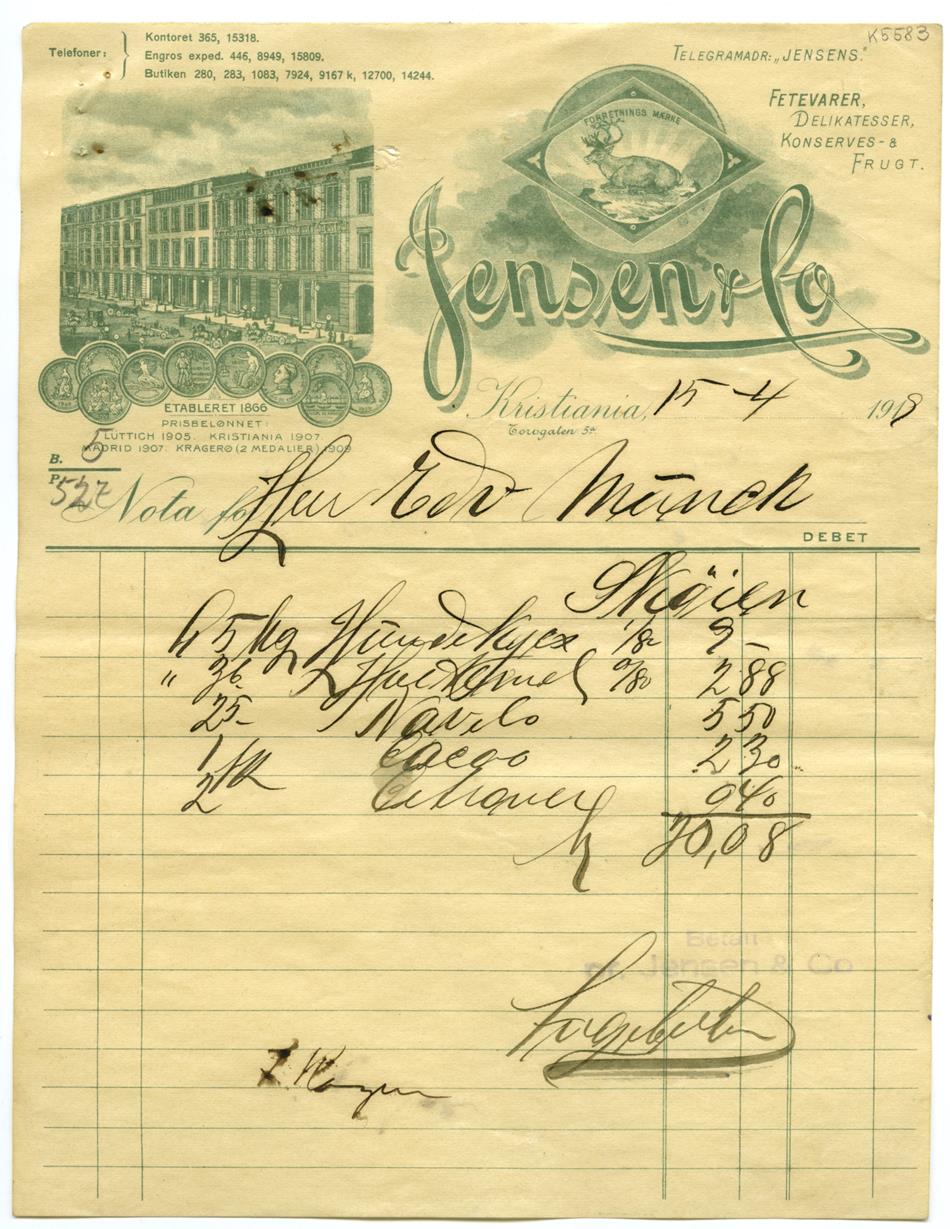 K5583
Telefoner:
Kontoret 365, 15318.
Engros exped. 446, 8949, 15809.
Butiken 280, 283, 1083, 7924, 9167 k, 12700, 14244.
TELEGRAMADR: „JENSENS."
FETEVARER,
DELIKATESSER,
KONSERVES- &
FRUGT.
FORRETNINGS MÆRKE
Jensen & Co
ETABLERET 1866
PRISBELØNNET:
LÜTTICH 1905. KRISTIANIA 1907
MADRID 1907. KRAGERØ (2 MEDALIER) 1909
Kristiania, 15-4 191
Torvgaten 5a
B. 5
P. 527
Nota for Herr Edv Munch
DEBET
Skøien
5 kg Hundekjex 1/80 9 –
" 36 0/80 2 88
25 – Navels 5 50
1 Cacao 2 30
2 Citroner 0 40
20,08
Betalt
pr. Jensen & Co